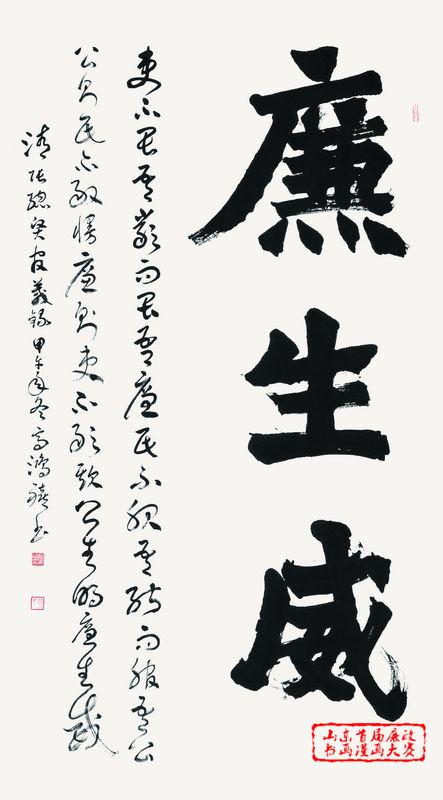 廉生威
吏不畏吾嚴而畏吾廉民不服吾能而服吾公
公則民不敢慢廉則吏不敢欺公生明廉生威
清張聰賢官箴錄甲午年冬高鴻書
山东首届廉政
书画漫画大赛